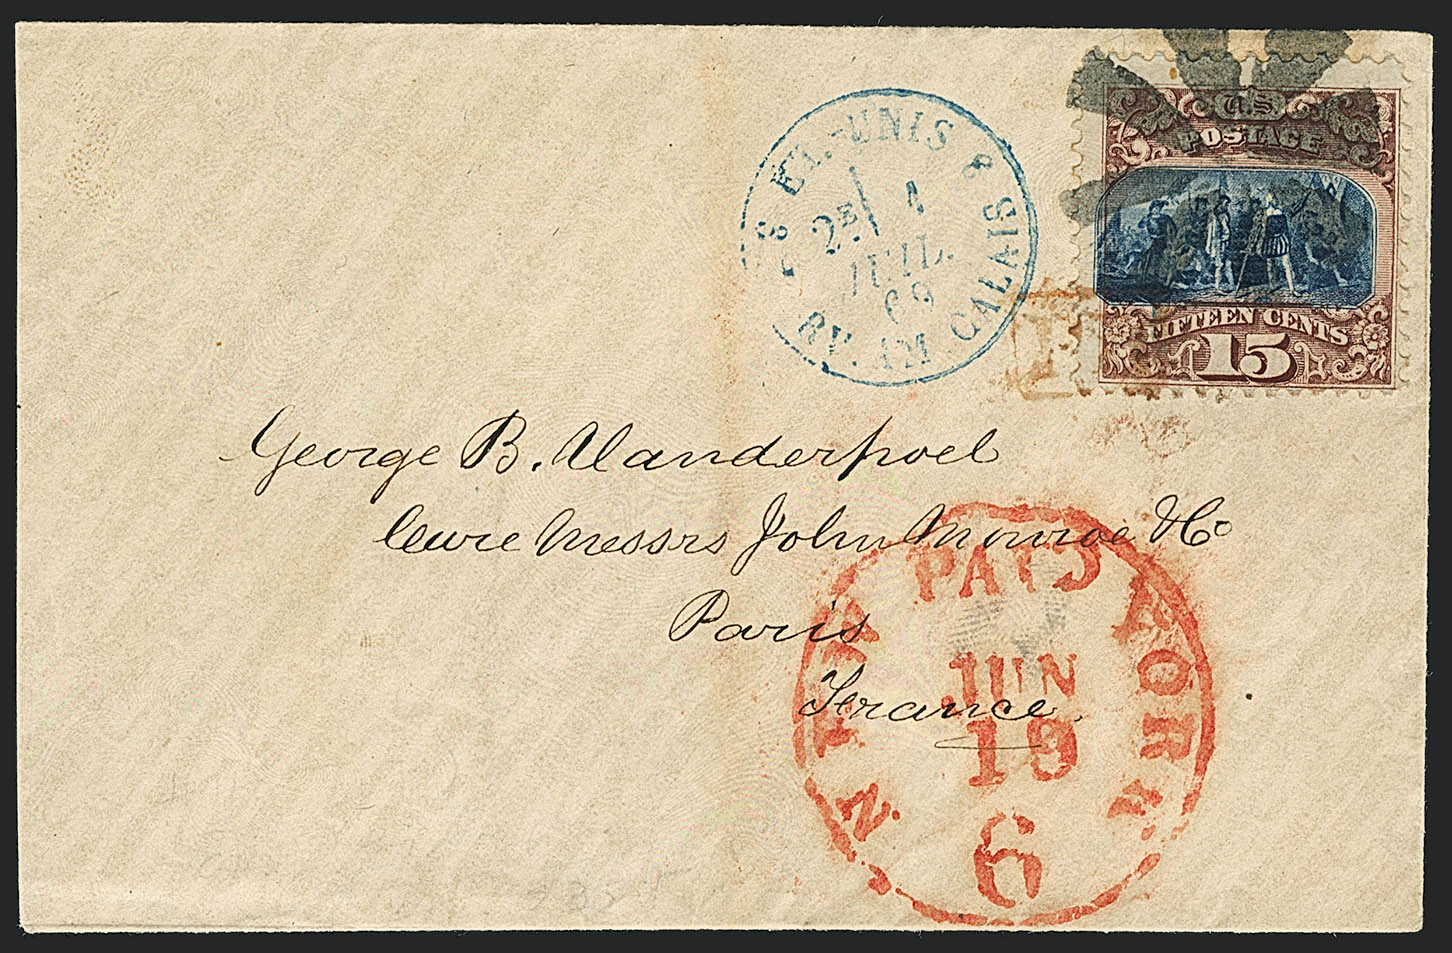 U.S.
POSTAGE
FIFTEEN CENTS
15
ET.-UNIS
2E 1
JUIL.
69
SERV. AM. CALAIS
George B. Vanderpoel
Care Messrs John Monroe & Co
Paris
France.
NEW PAID YORK
JUN
19
6